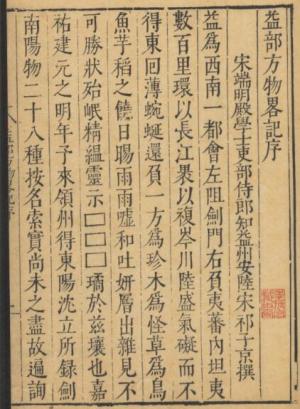 益部方物畧記序
宋端明殿學士吏部侍郎知益州安陸宋祁子京撰
益爲西南一都會左阻劍門右負夷蕃內坦夷
數百里環以長江裹以複岑川陸盛氣磋而不
得東回薄蜿蜒還負一方爲珍木爲怪草爲鳥
魚芋稻之饒日暘雨雨噓和吐妍層出雜見不
可勝狀殆岷精緼靈示□□□璚於兹壤也嘉
祐建元之明年予來領州得東陽沈立所録劍
南陽物二十八種按名索實尚未之盡故遍詢